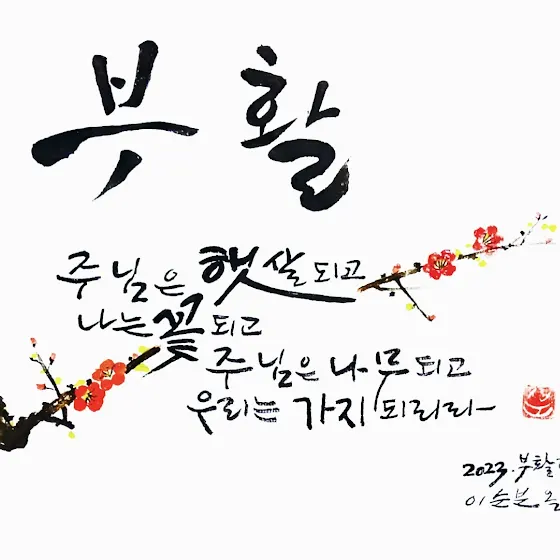 부활
주님은 햇살 되고
나는 꽃 되고
주님은 나무 되고
우리는 가지 되리라
2023. 부활
이순분